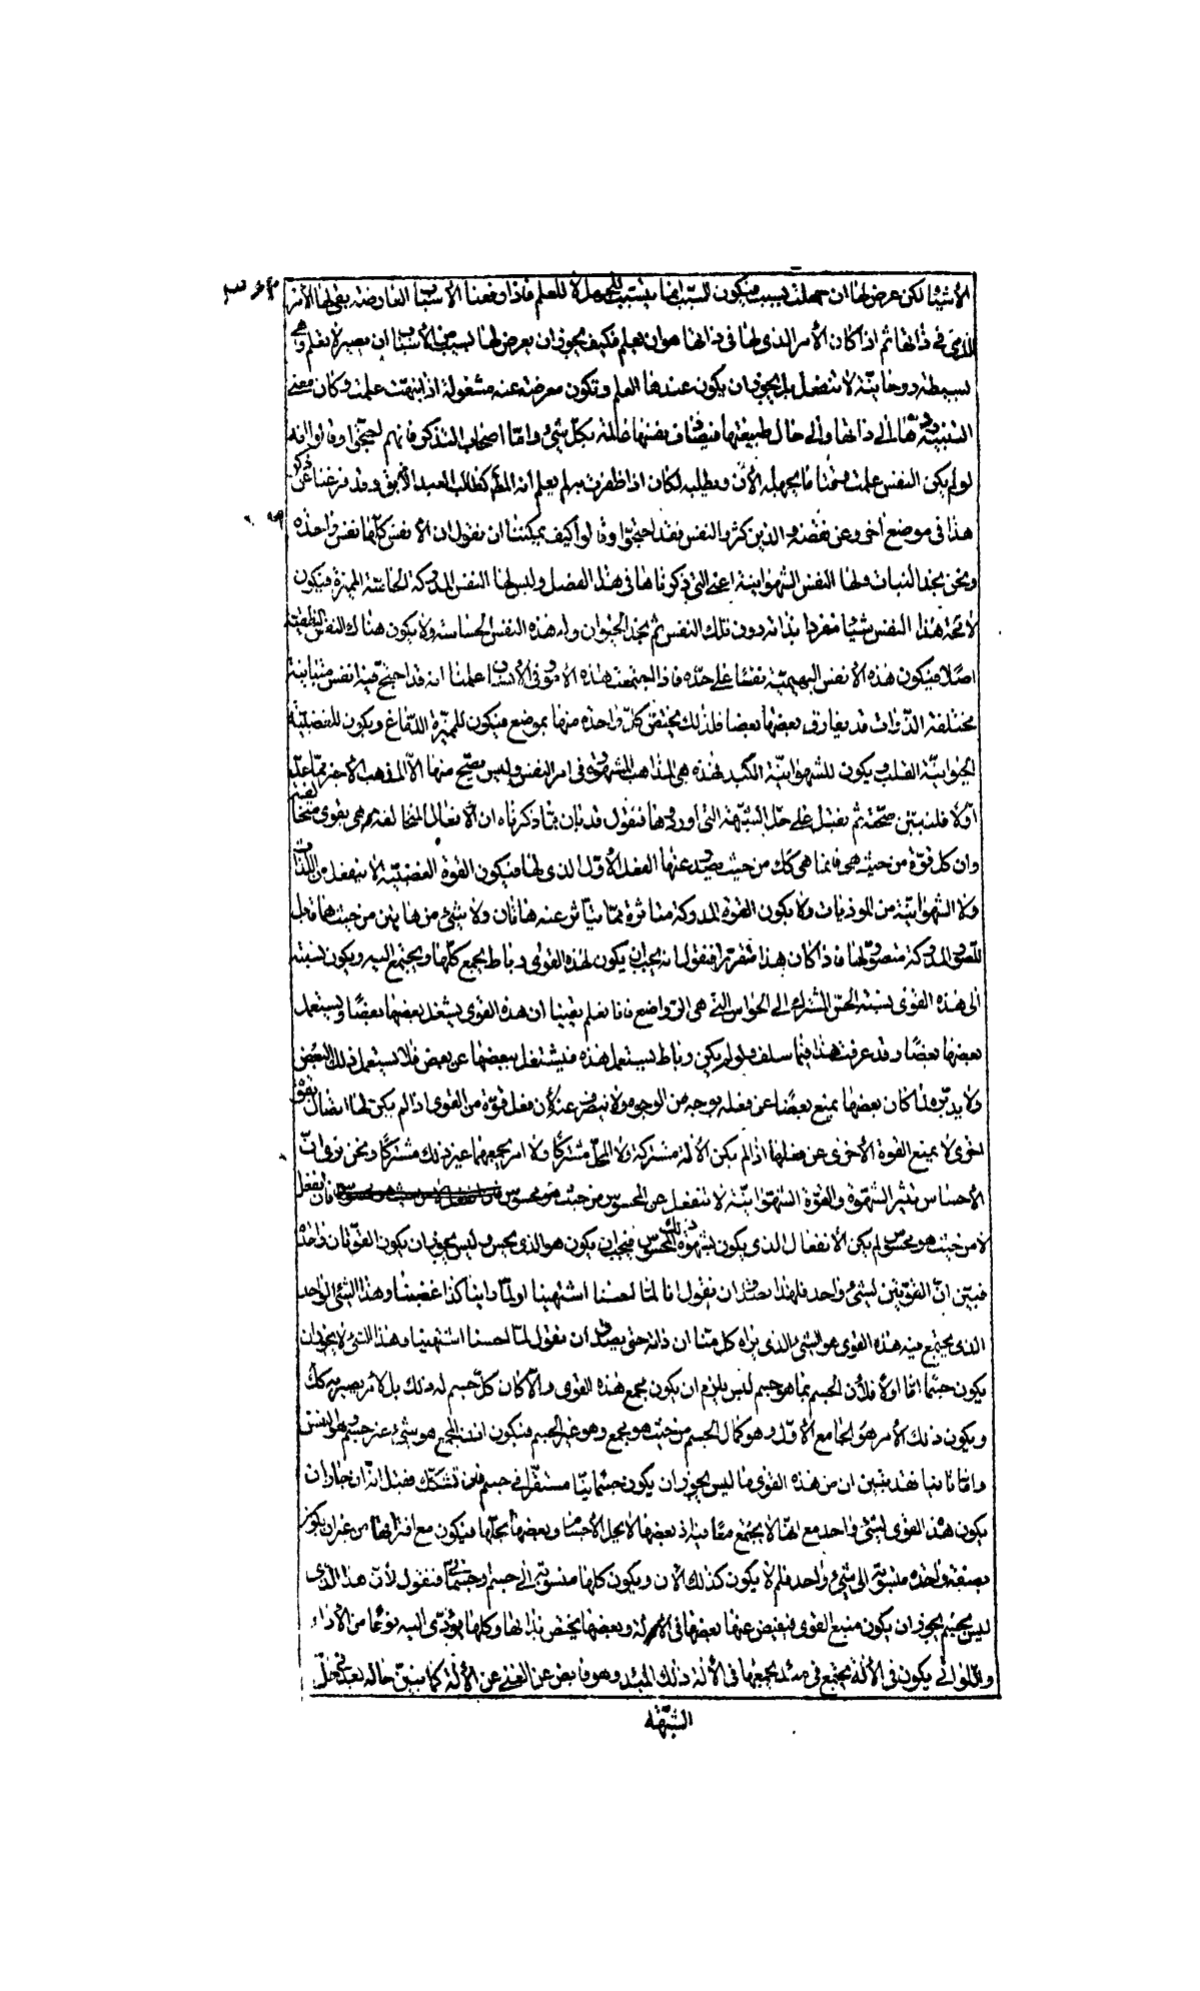 الأشياء لكن عرض لها ان جهلت بسبب فيكون السبب انما يتسبب للجهل لا للعلم فاذا رفعنا الأسباب العارضة بقي لها الأمر
الذي في ذاتها ثم اذا كان الأمر الذي لها في ذاتها هو ان يعلم فكيف يجوز ان يعرض لها بسبب من الأسباب ان يصير لا يعلم وهي
بسيطة روحانية لا تنفعل بل يجوز ان يكون عندها العلم وتكون معرضة عنه مشغولة اذا نبهت علمت وكان معنى
التنبيه ردها الى ذاتها والى حال طبيعتها فيصادف نفسها عالمة بكل شيء واما اصحاب التذكر فانهم احتجوا وقالوا انه
لو لم يكن النفس علمت وقتا ما يجهله الأن ويطلبه لكان اذا ظفرت به لم يعلم انه المط كطالب العبد الأبق وقد فرغنا عن ذكر
هذا في موضع اخر وعن نقضه والذين كثروا النفس فقد احتجوا وقالوا كيف يمكننا ان نقول ان الأنفس كلها نفس واحدة
ونحن نجد النبات ولها النفس الشهوانية اعني التي ذكرناها في هذا الفصل وليس لها النفس المدركة الحاسة المميزة فيكون
لا محة هذا النفس شيئا مفردا بذاته دون تلك النفس ثم نجد الحيوان وله هذه النفس الحساسة ولا يكون هناك النفس النطقية
اصلا فيكون هذه الأنفس البهيمية نفسا على حدة فاذا اجتمعت هذه الأمور في الأنسان علمنا انه قد اجتمع فيه انفس متباينة
مختلفة الذوات قد يفارق بعضها بعضا فلذلك يختص كل واحدة منها بموضع فيكون للمميزة الدماغ ويكون للغضبية
الحيوانية القلب ويكون للشهوانية الكبد فهذه هي المذاهب المشهورة في امر النفس وليس يصح منها الا المذهب الأخير مما عد
اولا فلنبين صحته ثم نقبل على حل الشبهة التي اوردوها فنقول قد بان مما ذكرناه ان الأفعال المتخالفة هي بقوى متخالفة
وان كل قوة من حيث هي فانما هي كك من حيث يصدر عنها الفعل الأول الذي لها فيكون القوة الغضبية لا ينفعل من اللذات
ولا الشهوانية من الموذيات ولا يكون القوة المدركة متاثرة مما يتاثر عنه هاتان ولا شيء من هاتين من حيث هما قابل
للصور المدركة متصور لها فاذا كان هذا متقررا فنقول انه يجب ان يكون لهذه القوى رباط يجمع كلها ويجتمع اليه ويكون نسبته
الى هذه القوى نسبة الحس المشترك الى الحواس التي هي الرواضع فانا نعلم يقينا ان هذه القوى يشغل بعضها بعضا ويستعمل
بعضها بعضا وقد عرفت هذا فيما سلف ولو لم يكن رباط يستعمل هذه فيشتغل ببعضها عن بعض فلا يستعمل ذلك البعض
ولا يدبره لما كان بعضها يمنع بعضا عن فعله بوجه من الوجوه ولا ينصرف عنه لأن فعل قوة من القوى اذا لم يكن لها اتصال بقوة
اخرى لا يمنع القوة الأخرى عن فعلها اذا لم يكن الألة مشتركة ولا المحل مشتركا ولا امر يجمعهما غير ذلك مشتركا ونحن نرى ان
الأحساس يثير الشهوة والقوة الشهوانية لا تنفعل عن المحسوس من حيث هو محسوس فان انفعل
لا من حيث هو محسوس لم يكن الأنفعال الذي يكون لشهوة ذلك المحسوس فيجب ان يكون هو الذي يحس وليس يجوز ان يكون القوتان واحدة
فبين ان القوتين لشيء واحد فلهذا يصدق ان نقول انا لما احسنا اشتهينا او لما راينا كذا غضبنا وهذا الشيء الواحد
الذي يجتمع فيه هذه القوى هو الشيء الذي يراه كل منا ان ذاته حتى يصدق أن نقول لما احسنا اشتهينا وهذا الشيء لا يجوز ان
يكون جسما اما اولا فلأن الجسم بما هو جسم ليس يلزم ان يكون مجمع هذه القوى والا كان كل جسم له ذلك بل لأمر يصير به كك
ويكون ذلك الأمر هو الجامع الأول وهو كمال الجسم من حيث هو مجمع وهو غير الجسم فيكون اذن المجمع هو شيء غير جسم وهو النفس
واما ثانيا فقد تبين ان من هذه القوى ما ليس يجوز ان يكون جسمانيا مستقرا في جسم فان تشكك فقيل انه ان جاز ان
يكون هذه القوى لشيء واحد مع انها لا يجتمع معا فيه اذ بعضها لا يحل الأجسام وبعضها يحلها فيكون مع افتراقها من غير ان يكون
بصفة واحدة منسوبة الى شيء واحد فلم لا يكون كذلك الأن ويكون كلها منسوبة الى جسم او جسماني فنقول لأن هذا الذي
ليس بجسم يجوز ان يكون منبع القوى فيفيض عنها بعضها في الألة وبعضها يختص بذاتها وكلها يؤدي اليه نوعا من الأداء
واللواتي يكون في الألة يجتمع في مبدء يجمعها في الألة ذلك المبدء وهو فايض عن الغني عن الألة كما نبين حاله بعد في حل
الشبهة